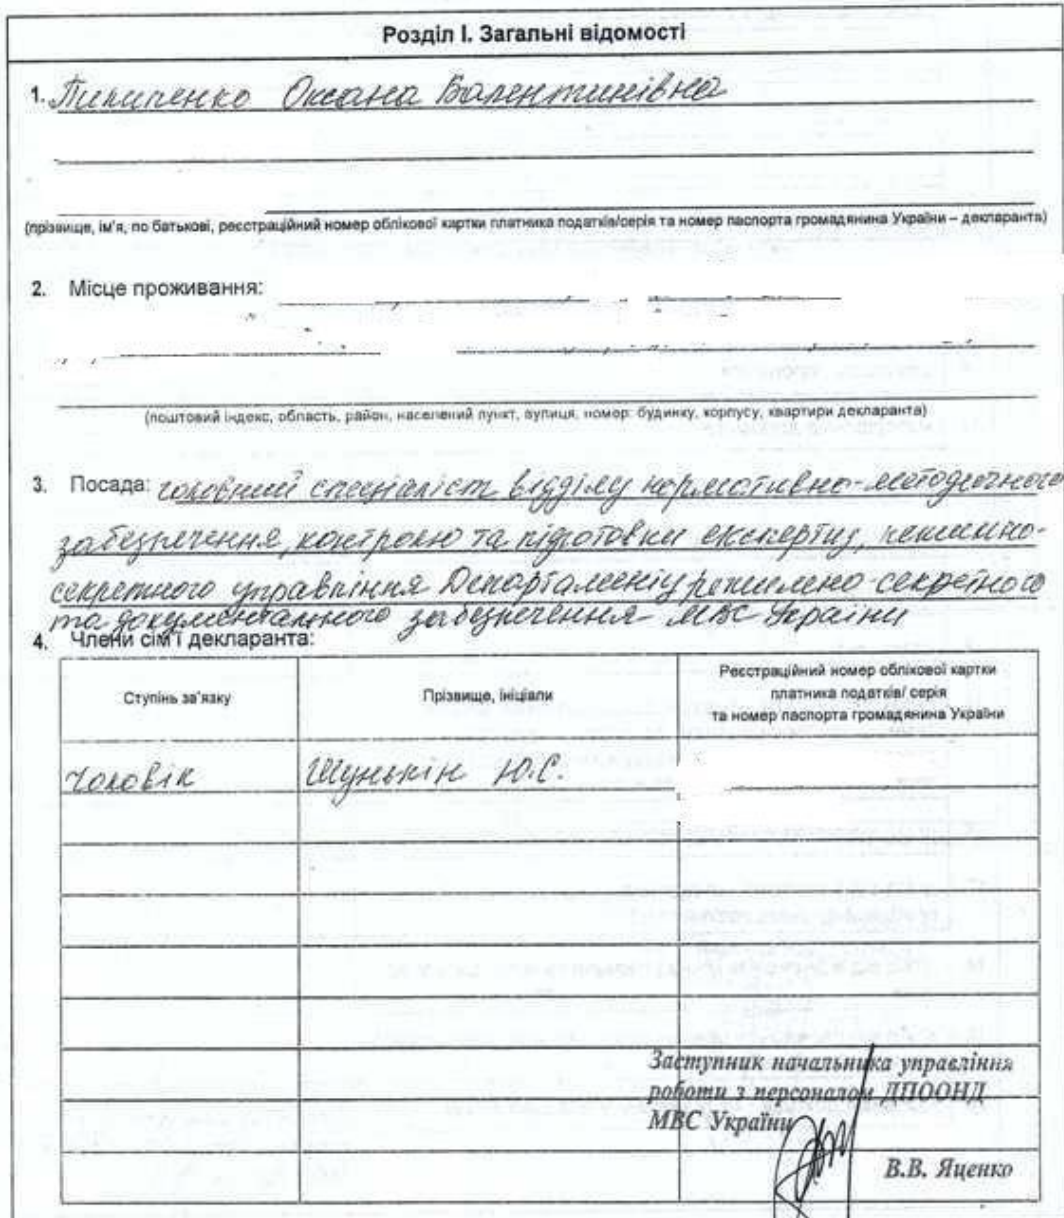 Розділ I. Загальні відомості
1. Пилипенко Оксана Валентинівна
(прізвище, ім'я, по батькові, реєстраційний номер облікової картки платника податків/серія та номер паспорта громадянина України – декларанта)
2. Місце проживання:
(поштовий індекс, область, район, населений пункт, вулиця, номер: будинку, корпусу, квартири декларанта)
3. Посада: головний спеціаліст відділу нормативно-методичного
забезпечення, контролю та підготовки експертиз, режимно-
секретного управління Департаменту режимно-секретного
та документального забезпечення МВС України
4. Члени сім'ї декларанта:
Ступінь зв'язку
Прізвище, ініціали
Реєстраційний номер облікової картки
платника податків/ серія
та номер паспорта громадянина України
чоловік Шунькін Ю.С.
Заступник начальника управління
роботи з персоналом ДПООНД
МВС України
В.В. Яценко